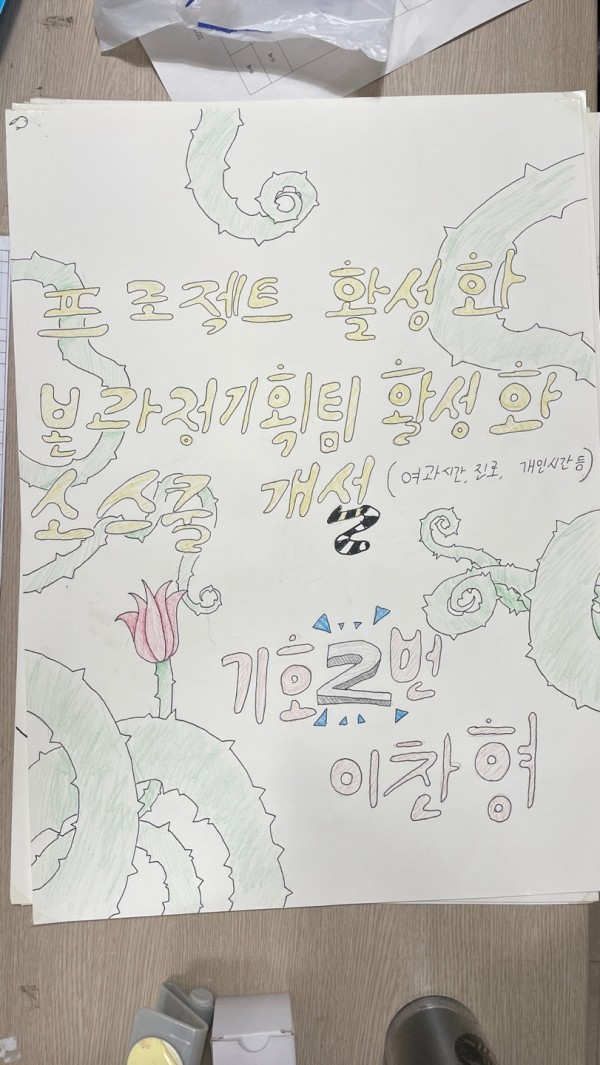 프로젝트 활성화
본라정기획팀 활성화
소스쿨 개설 (여과시간, 진로, 개인시간 등)
기호 2번
이찬형